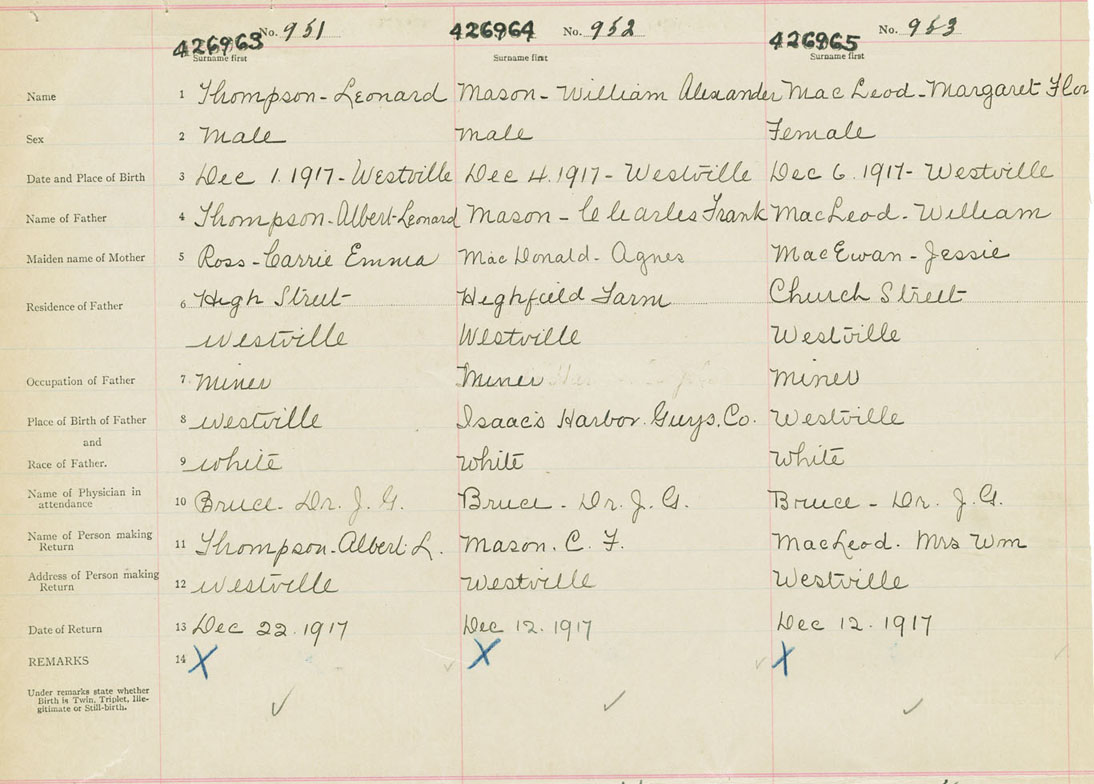 426963 No. 951 426964 No. 952 426965 No. 953
Surname first Surname first Surname first
Name 1 Thompson - Leonard Mason - William Alexander MacLeod - Margaret Flor
Sex 2 Male Male Female
Date and Place of Birth 3 Dec 1. 1917 - Westville Dec 4. 1917 - Westville Dec 6. 1917 - Westville
Name of Father 4 Thompson - Albert Leonard Mason - Charles Frank MacLeod - William
Maiden name of Mother 5 Ross - Carrie Emma MacDonald - Agnes MacEwan - Jessie
Residence of Father 6 High Street Highfield Farm Church Street
Westville Westville Westville
Occupation of Father 7 Miner Miner Miner
Place of Birth of Father 8 Westville Isaac's Harbor Guys. Co. Westville
and
Race of Father. 9 White White White
Name of Physician in attendance 10 Bruce - Dr. J. G. Bruce - Dr. J. G. Bruce - Dr. J. G.
Name of Person making Return 11 Thompson - Albert L. Mason. C. F. MacLeod. Mrs Wm
Address of Person making Return 12 Westville Westville Westville
Date of Return 13 Dec 22. 1917 Dec 12. 1917 Dec 12. 1917
REMARKS 14 X X X
Under remarks state whether
Birth is Twin, Triplet, Ille-
gitimate or Still-birth.